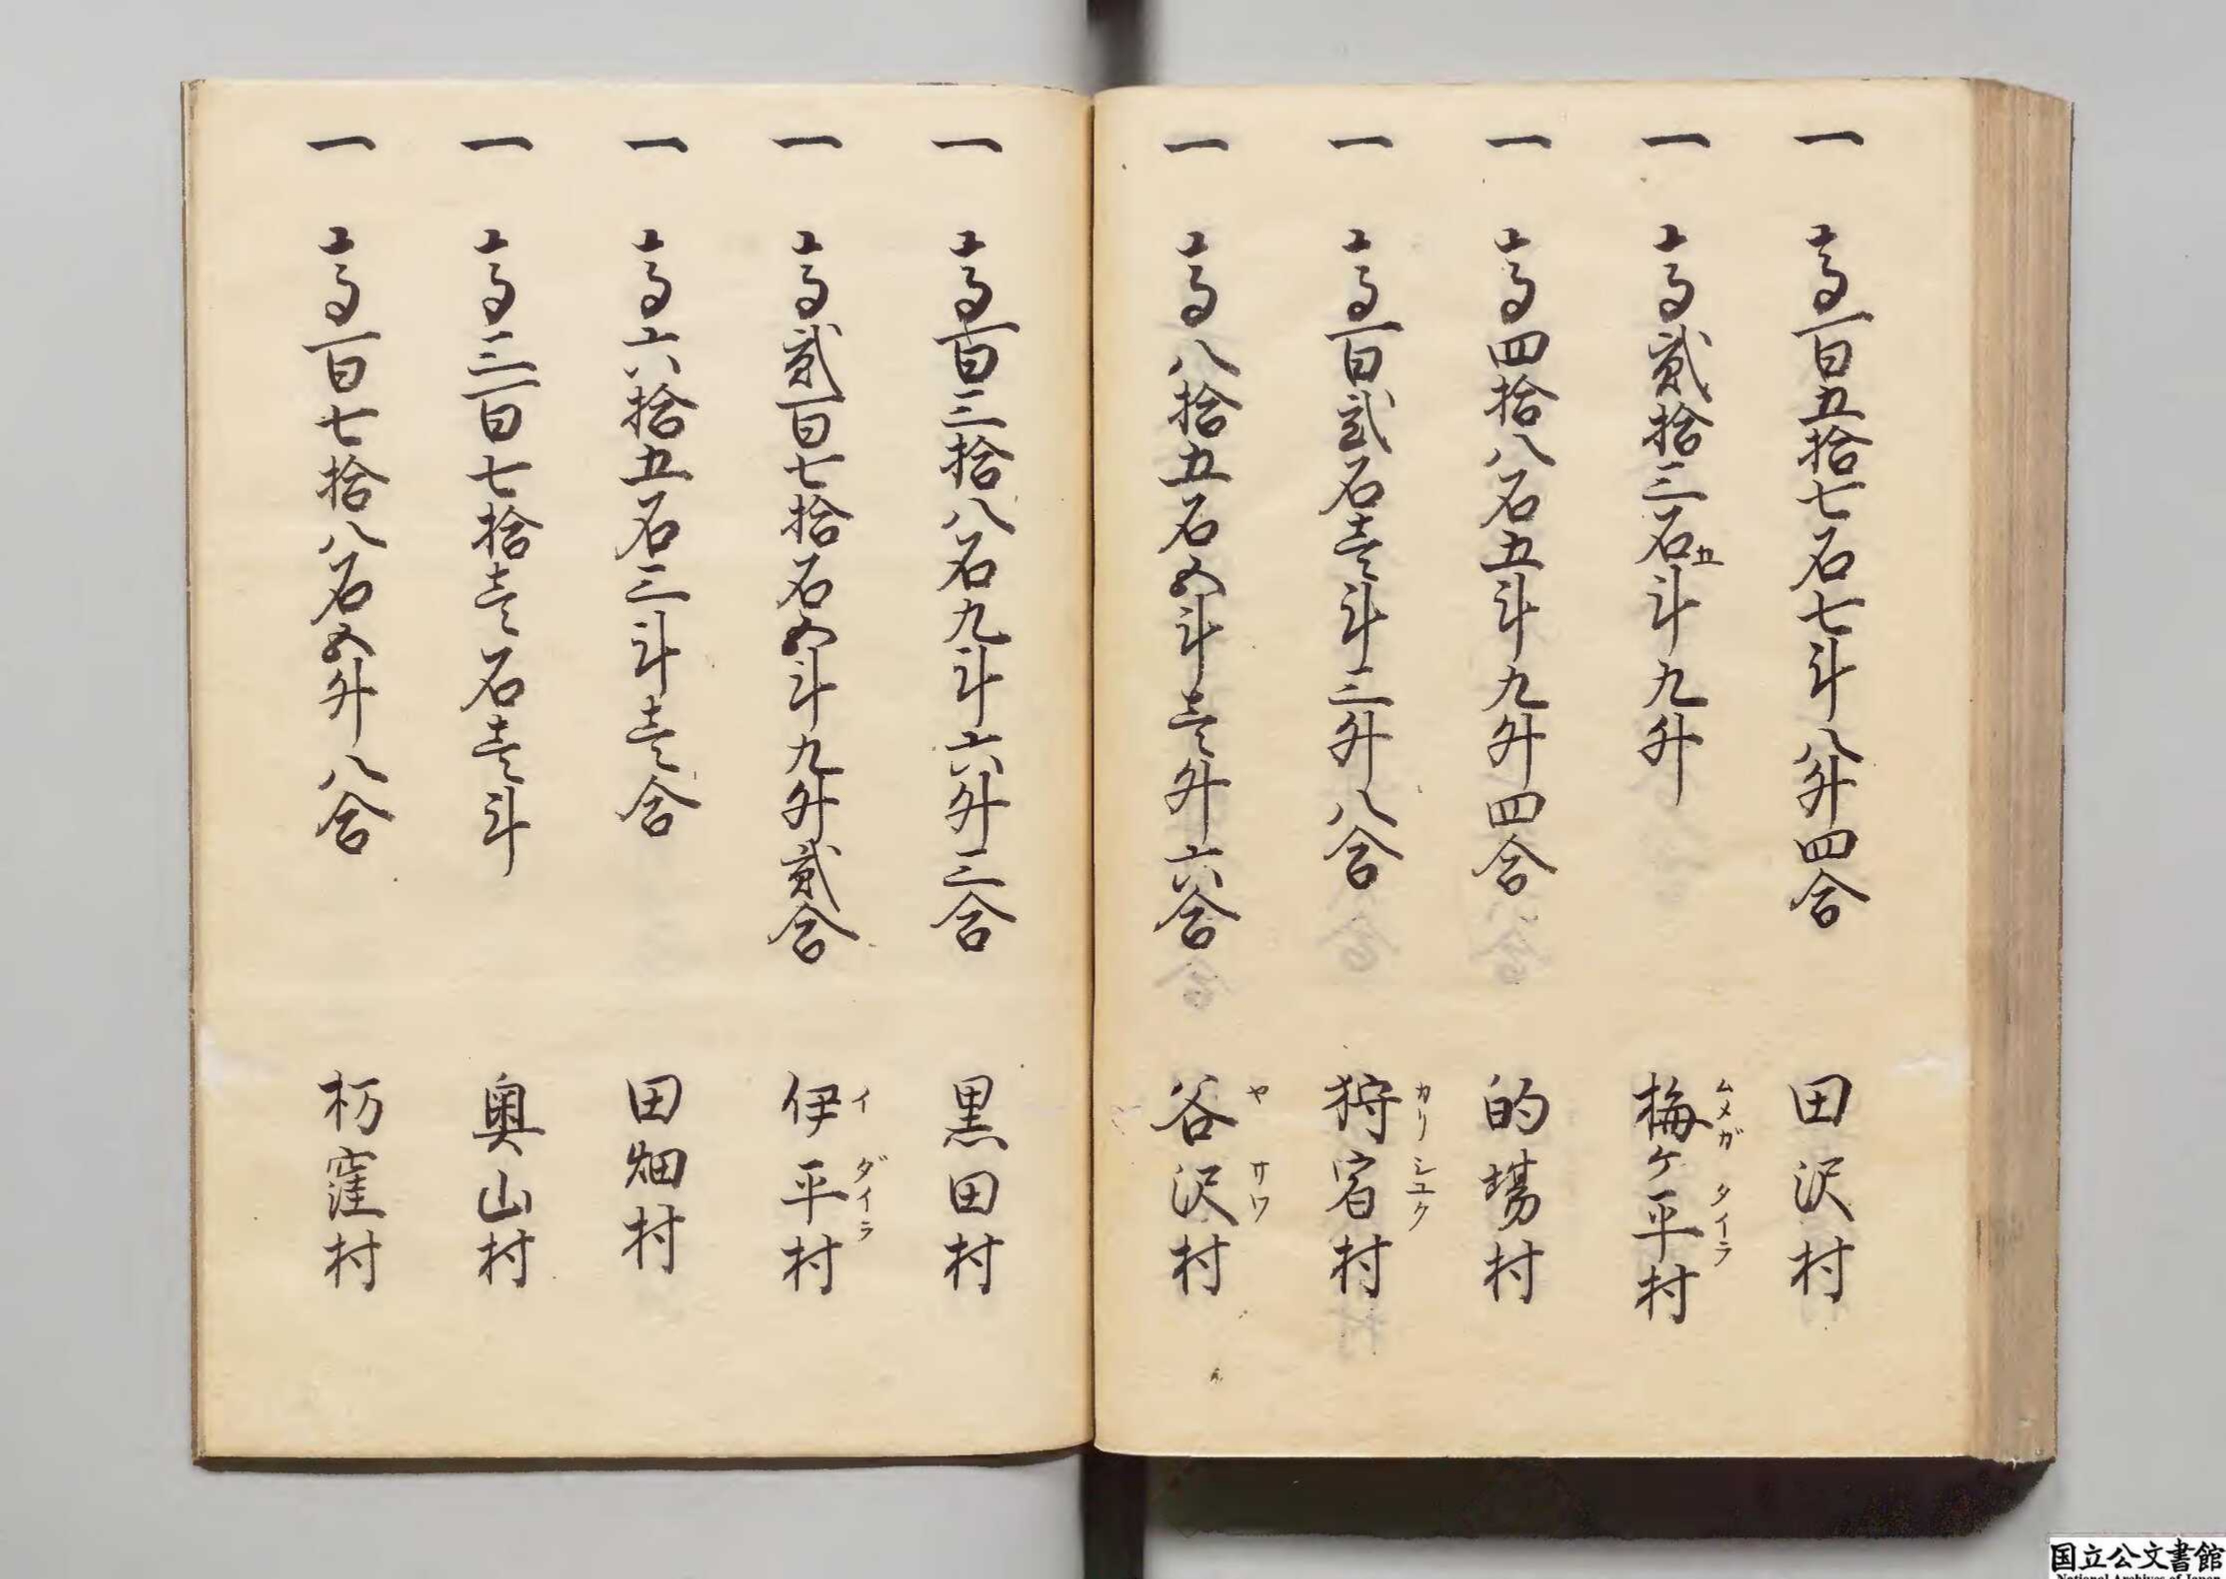 一 高百五拾七石七斗八升四合 田沢村
一 高貳拾三石五斗九升 梅ケ平村
ムメガ タイラ
一 高四拾八石五斗九升四合 的場村
一 高百弐石壱斗三升八合 狩宿村
カリ シユク
一 高八拾五石五斗壱升六合 谷沢村
ヤ サワ
一 高百三拾八石九斗六升三合 黒田村
一 高貳百七拾石五斗九升貳合 伊平村
イ ダイラ
一 高六拾五石三斗壱合 田畑村
一 高三百七拾壱石壱斗 奥山村
一 高百七拾八石五升八合 杤窪村
国立公文書館
National Archives of Japan